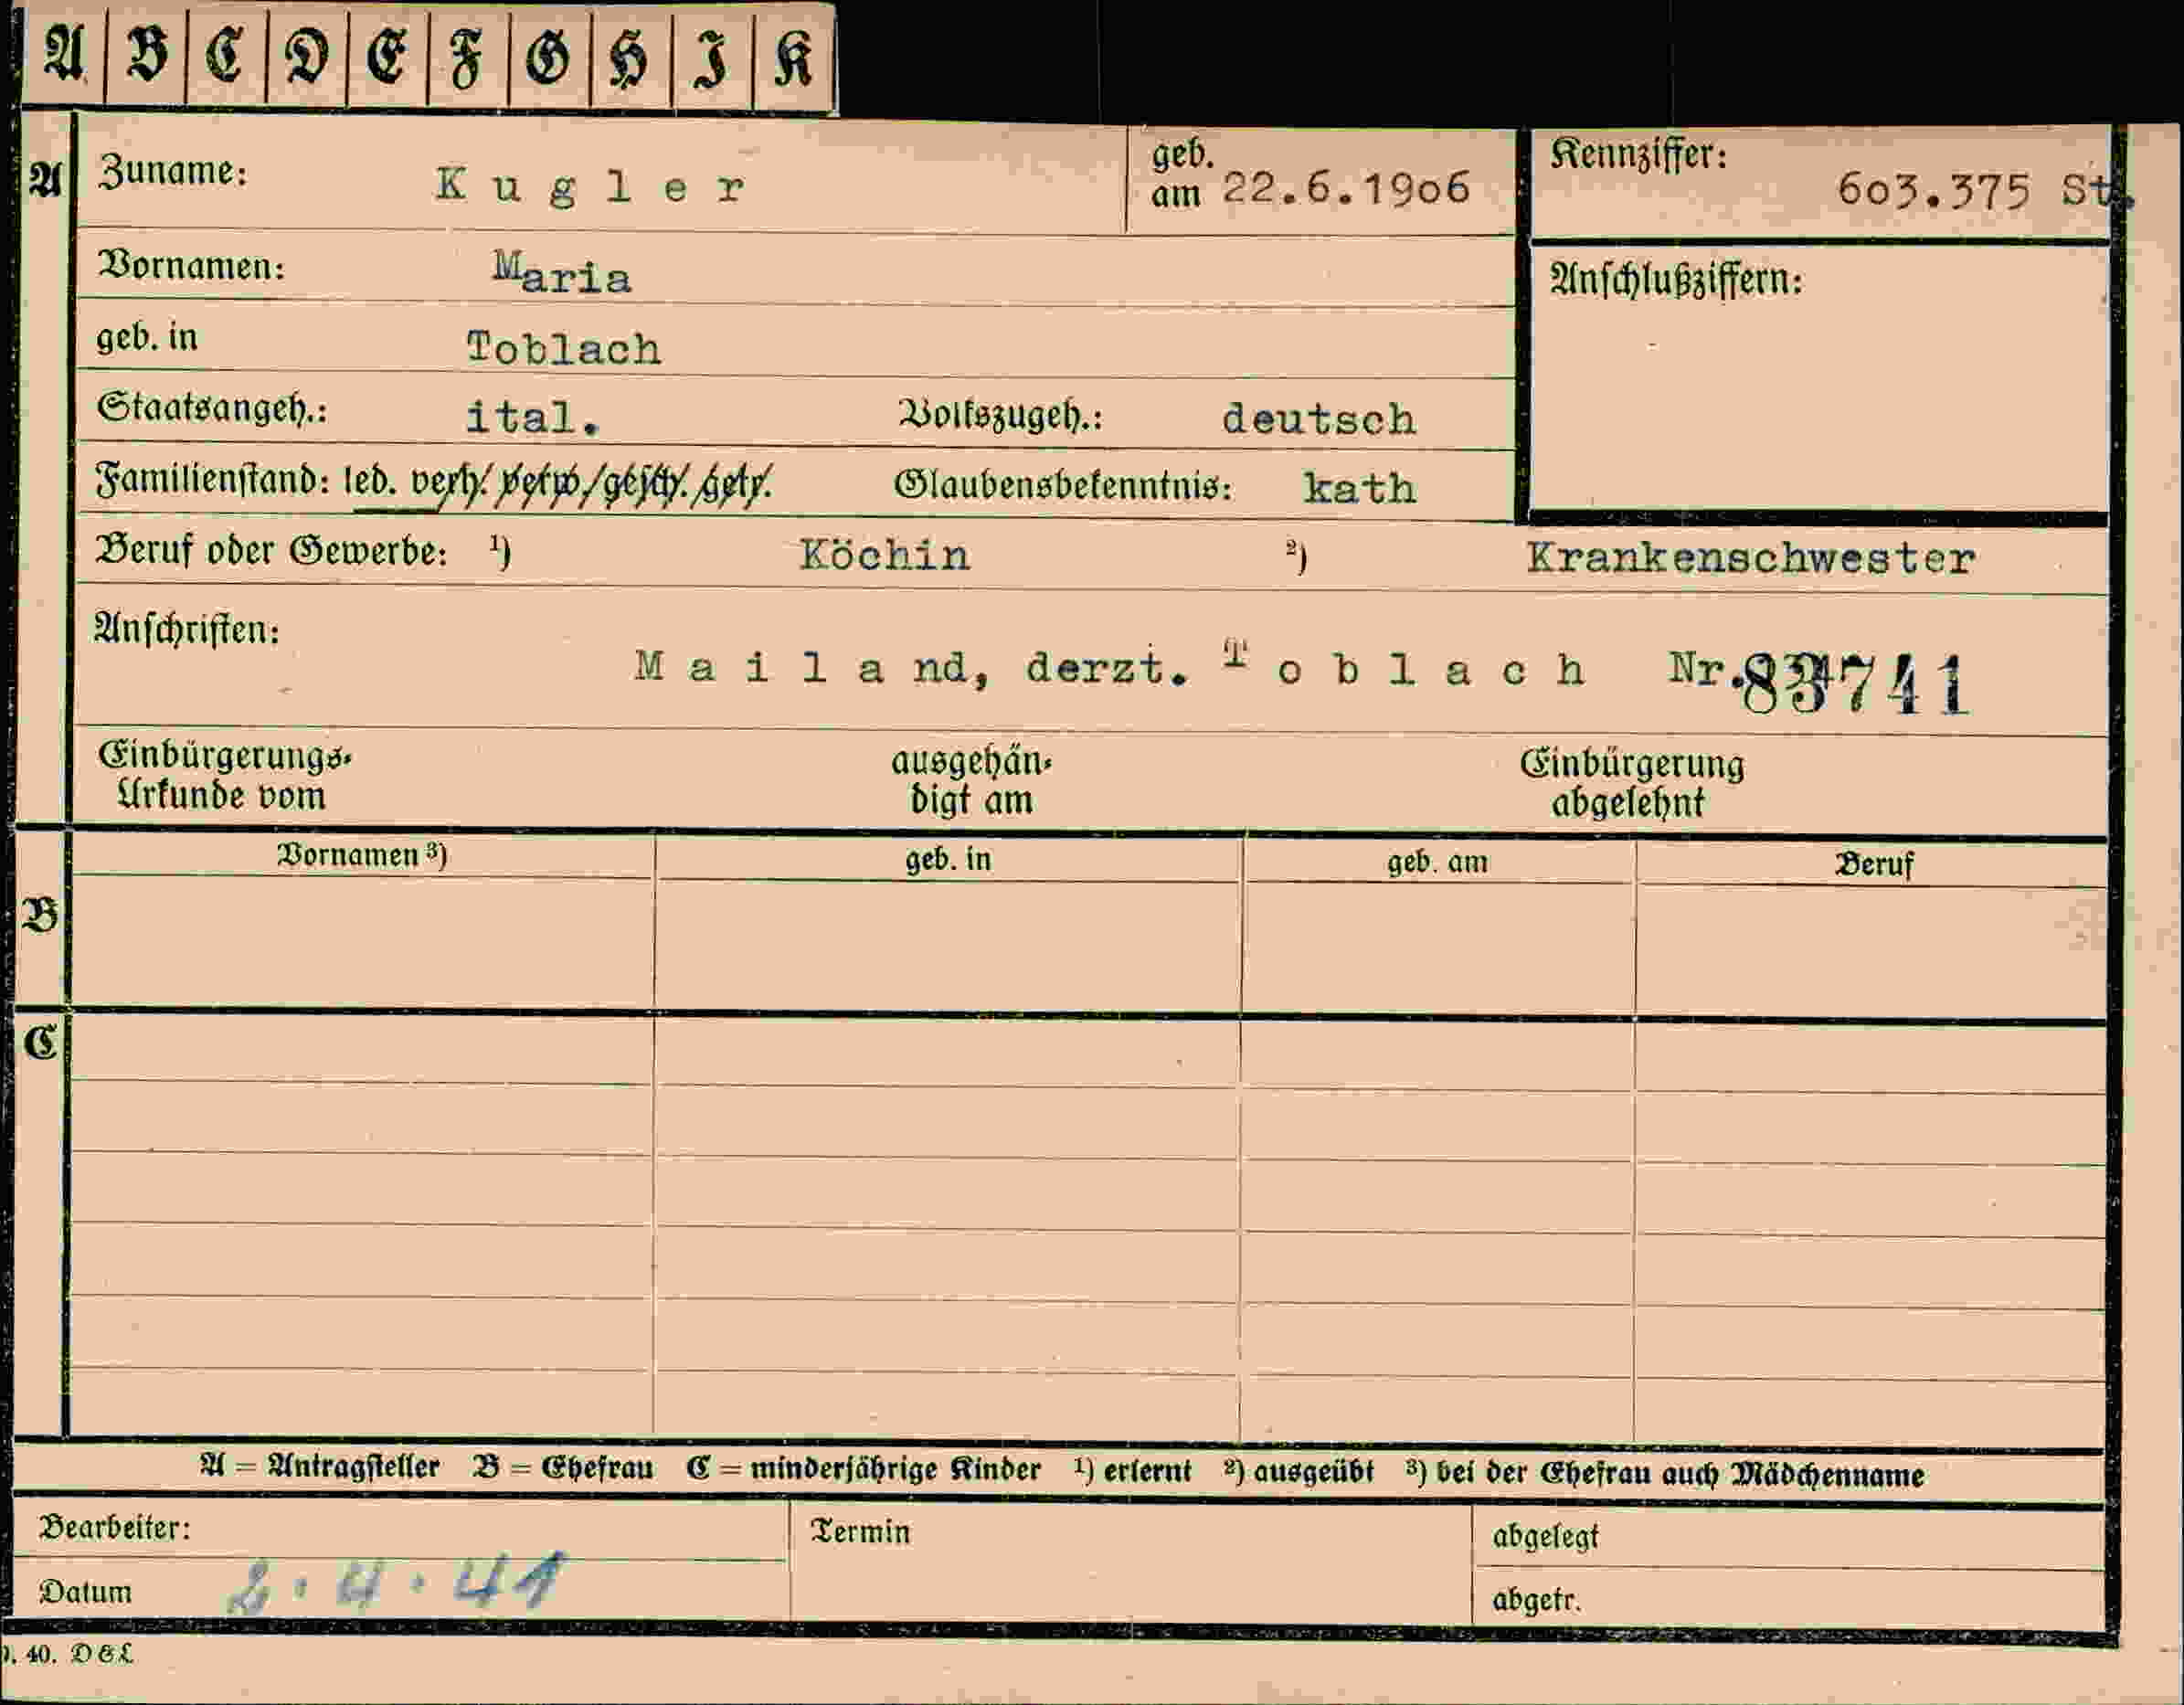 A B C D E F G H I K
A Zuname: Kugler geb. am 22.6.1906 Kennziffer: 603.375 St.
Vornamen: Maria Anschlußziffern:
geb. in Toblach
Staatsangeh.: ital. Volkszugeh.: deutsch
Familienstand: led. verh. verw. gesch. getr. Glaubensbekenntnis: kath
Beruf oder Gewerbe: ¹) Köchin ²) Krankenschwester
Anschriften:
Mailand, derzt. Toblach Nr.
Einbürgerungs- ausgehän- Einbürgerung
Urkunde vom digt am abgelehnt
Vornamen ³) geb. in geb. am Beruf
B
C
A = Antragsteller B = Ehefrau C = minderjährige Kinder ¹) erlernt ²) ausgeübt ³) bei der Ehefrau auch Mädchenname
Bearbeiter: Termin abgelegt
Datum 2.4.41 abgetr.
40. D&L